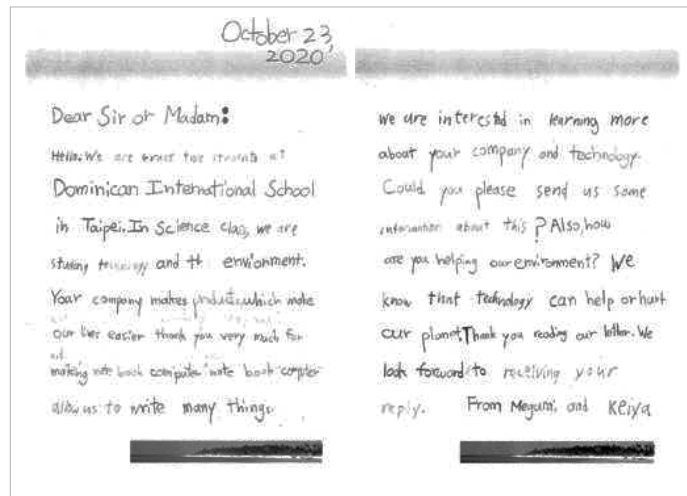 October 23,
2020
Dear Sir or Madam:
Hello. We are grade five students at
Dominican International School
in Taipei. In Science class, we are
studing and th envionment.
Your company makes products, which make
our lives easier thank you very much for
making note book computer note book compter
allow us to write many things
we are interestd in learning more
about your company and technology.
Could you please send us some
information about this? Also, how
are you helping our environment? We
know that technology can help or hurt
our planet. Thank you reading our letter. We
look forward to receiving your
reply. From Megumi, and Keiya